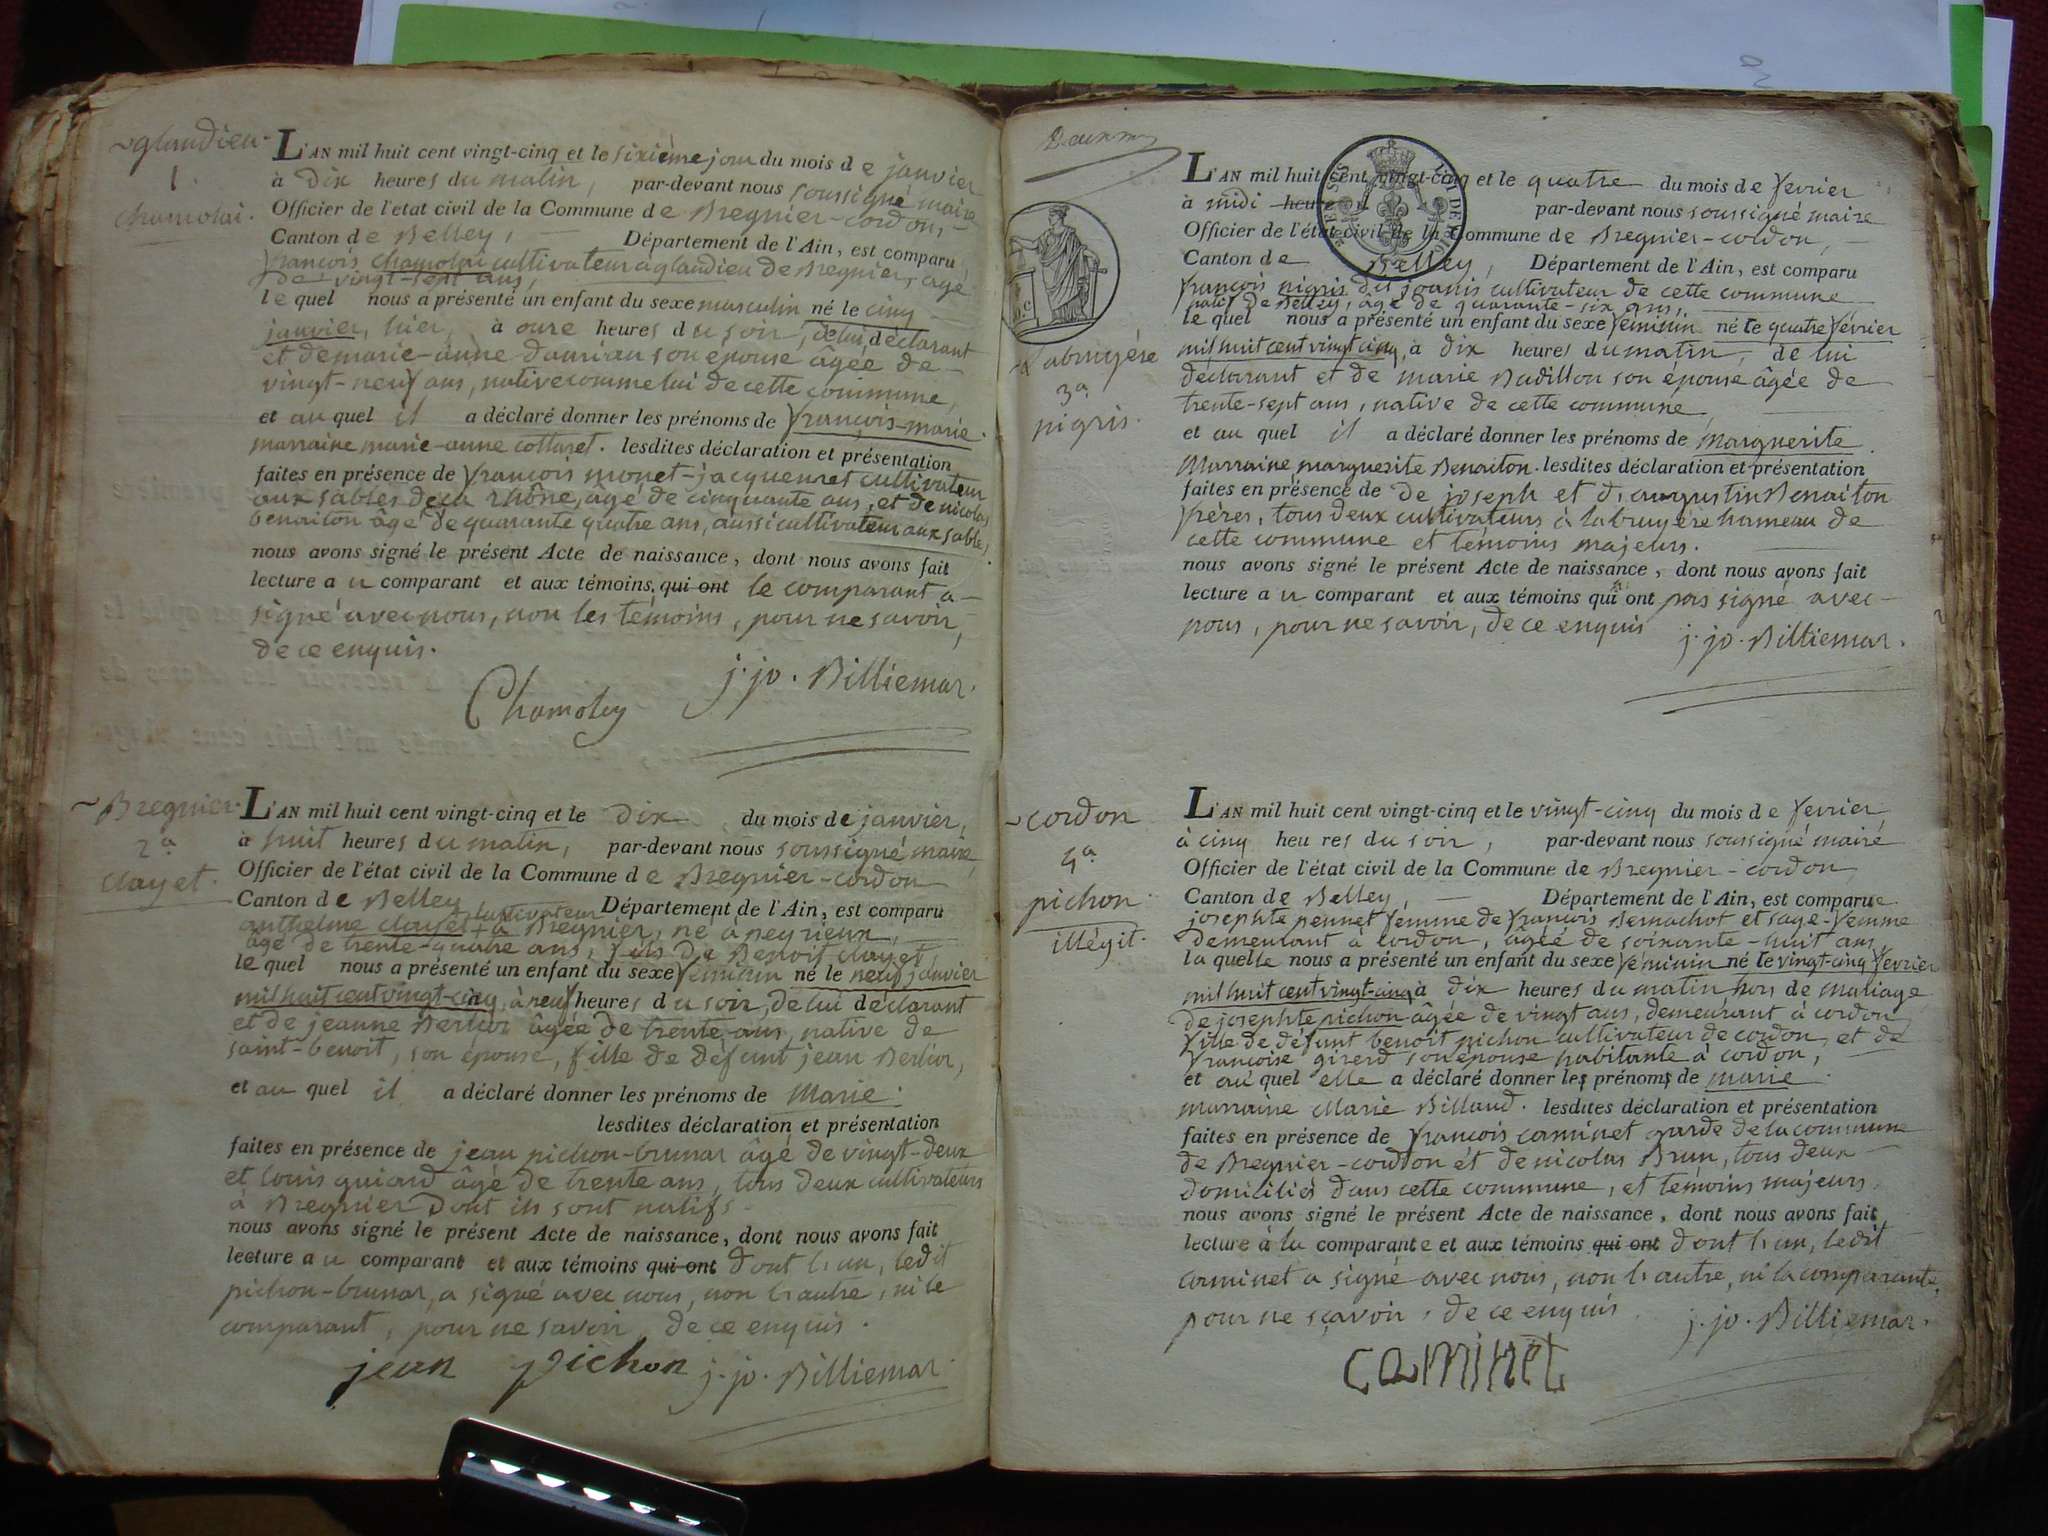 ~glandieu.
1.
chamolai.
L'AN mil huit cent vingt-cinq et le sixième jour du mois de janvier
à dix heures du matin, par-devant nous soussigné maire
Officier de l'etat civil de la Commune de Bregnier-cordon,
Canton de Belley, Département de l'Ain, est comparu
françois chamolai cultivateur à glandieu de Bregnier, agé
de vingt-sept ans,
le quel nous a présenté un enfant du sexe masculin né le cinq
janvier, hier, à onze heures du soir, de lui déclarant
et de marie-anne damian son épouse âgée de
vingt-neuf ans, native comme lui de cette commune,
et au quel il a déclaré donner les prénoms de françois-marie.
marraine marie-anne cottaret. lesdites déclaration et présentation
faites en présence de françois monet-jacquenret cultivateur
aux sables deça rhône, agé de cinquante ans, et de nicolas
benaiton âgé de quarante quatre ans, aussi cultivateur aux sables,
nous avons signé le présent Acte de naissance, dont nous avons fait
lecture au comparant et aux témoins, qui ont le comparant a
signé avec nous, non les témoins, pour ne savoir,
de ce enquis.
Chamoley j. jo. Billiemaz.
~Bregnier.
2a
clayet.
L'AN mil huit cent vingt-cinq et le dix du mois de janvier,
à huit heures du matin, par-devant nous soussigné maire,
Officier de l'état civil de la Commune de Bregnier-cordon
Canton de Belley Département de l'Ain, est comparu
anthelme clayet cultivateur à Bregnier, né à peyrieux,
âgé de trente-quatre ans, fils de Benoit clayet,
le quel nous a présenté un enfant du sexe féminin né le neuf janvier
mil huit cent vingt-cinq, à neuf heures du soir, de lui déclarant
et de jeanne Berlioz âgée de trente ans, native de
saint-benoit, son épouse, fille de défunt jean Berlioz,
et au quel il a déclaré donner les prénoms de Marie.
lesdites déclaration et présentation
faites en présence de jean pichon-brunaz âgé de vingt-deux
et louis guiard âgé de trente ans, tous deux cultivateurs
à Bregnier dont ils sont natifs.
nous avons signé le présent Acte de naissance, dont nous avons fait
lecture au comparant et aux témoins qui ont dont l'un, ledit
pichon-brunaz, a signé avec nous, non l'autre, ni le
comparant, pour ne savoir, de ce enquis.
jean pichon j. jo. Billiemaz.
labruyère
3a
nigris.
L'AN mil huit cent vingt-cinq et le quatre du mois de février
à midi heure par-devant nous soussigné maire
Officier de l'état civil de la Commune de Bregnier-cordon,
Canton de Belley, Département de l'Ain, est comparu
françois nigris dit joanis cultivateur de cette commune
natif de Belley, âgé de quarante-six ans,
le quel nous a présenté un enfant du sexe féminin né le quatre février
mil huit cent vingt cinq, à dix heures du matin, de lui
déclarant et de marie Badillon son épouse âgée de
trente-sept ans, native de cette commune,
et au quel il a déclaré donner les prénoms de Marguerite.
Marraine marguerite Benaiton. lesdites déclaration et présentation
faites en présence de de joseph et d'augustin Benaiton
frères, tous deux cultivateurs à labruyère hameau de
cette commune et témoins majeurs.
nous avons signé le présent Acte de naissance, dont nous avons fait
lecture au comparant et aux témoins qui n'ont pas signé avec
nous, pour ne savoir, de ce enquis j. jo. Billiemaz.
~cordon
4a
pichon.
illégit.
L'AN mil huit cent vingt-cinq et le vingt-cinq du mois de février,
à cinq heures du soir, par-devant nous soussigné maire
Officier de l'état civil de la Commune de Bregnier-cordon,
Canton de Belley, Département de l'Ain, est comparue
josephte pennet femme de françois Bernachot et sage-femme
demeurant à cordon, âgée de soixante-huit ans,
la quelle nous a présenté un enfant du sexe féminin né le vingt-cinq février
mil huit cent vingt-cinq à dix heures du matin hors de mariage
de josephte pichon âgée de vingt ans, demeurant à cordon,
fille de défunt benoît pichon cultivateur de cordon, et de
françoise girerd son épouse habitante à cordon,
et au quel elle a déclaré donner les prénoms de marie.
marraine Marie Billaud. lesdites déclaration et présentation
faites en présence de françois caminet garde de la commune
de Bregnier-cordon et de nicolas Brun, tous deux
domiciliés dans cette commune, et témoins majeurs.
nous avons signé le présent Acte de naissance, dont nous avons fait
lecture à la comparante et aux témoins qui ont dont l'un, ledit
caminet a signé avec nous, non l'autre, ni la comparante,
pour ne sçavoir, de ce enquis. j. jo. Billiemaz.
caminet